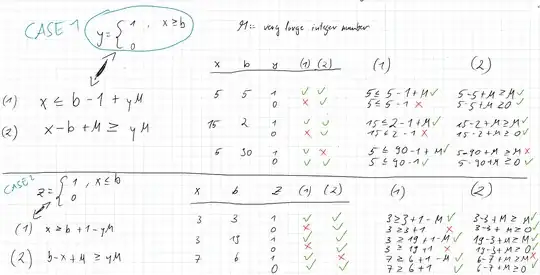 CASE 1
y = { 1 , x ≥ b
0
M = very large integer number
(1) x ≤ b - 1 + yM
(2) x - b + M ≥ yM
x b y (1) (2) (1) (2)
5 5 1 ✓ ✓ 5 ≤ 5 - 1 + M ✓ 5 - 5 + M ≥ M ✓
0 × ✓ 5 ≤ 5 - 1 × 5 - 5 + M ≥ 0 ✓
15 2 1 ✓ ✓ 15 ≤ 2 - 1 + M ✓ 15 - 2 + M ≥ M ✓
0 × ✓ 15 ≤ 2 - 1 × 15 - 2 + M ≥ 0 ✓
5 30 1 ✓ × 5 ≤ 90 - 1 + M ✓ 5 - 90 + M ≥ M ×
0 ✓ ✓ 5 ≤ 90 - 1 ✓ 5 - 90 + M ≥ 0 ✓
CASE 2
z = { 1 , x ≤ b
0
(1) x ≥ b + 1 - yM
(2) b - x + M ≥ yM
x b z (1) (2) (1) (2)
3 3 1 ✓ ✓ 3 ≥ 3 + 1 - M ✓ 3 - 3 + M ≥ M ✓
0 × ✓ 3 ≥ 3 + 1 × 3 - 3 + M ≥ 0 ✓
3 19 1 ✓ ✓ 3 ≥ 19 + 1 - M ✓ 19 - 3 + M ≥ M ✓
0 × ✓ 3 ≥ 19 + 1 × 19 - 3 + M ≥ 0 ✓
7 6 1 ✓ × 7 ≥ 6 + 1 - M ✓ 6 - 7 + M ≥ M ×
0 ✓ ✓ 7 ≥ 6 + 1 ✓ 6 - 7 + M ≥ 0 ✓